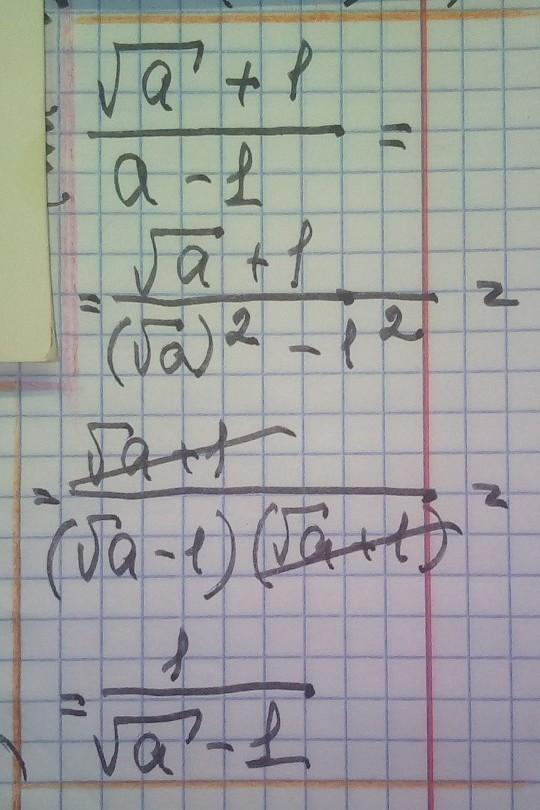 √a + 1
/
a - 1 =
= √a + 1
/
(√a)² - 1² =
= √a + 1
/
(√a - 1)(√a + 1) =
= 1
/
√a - 1